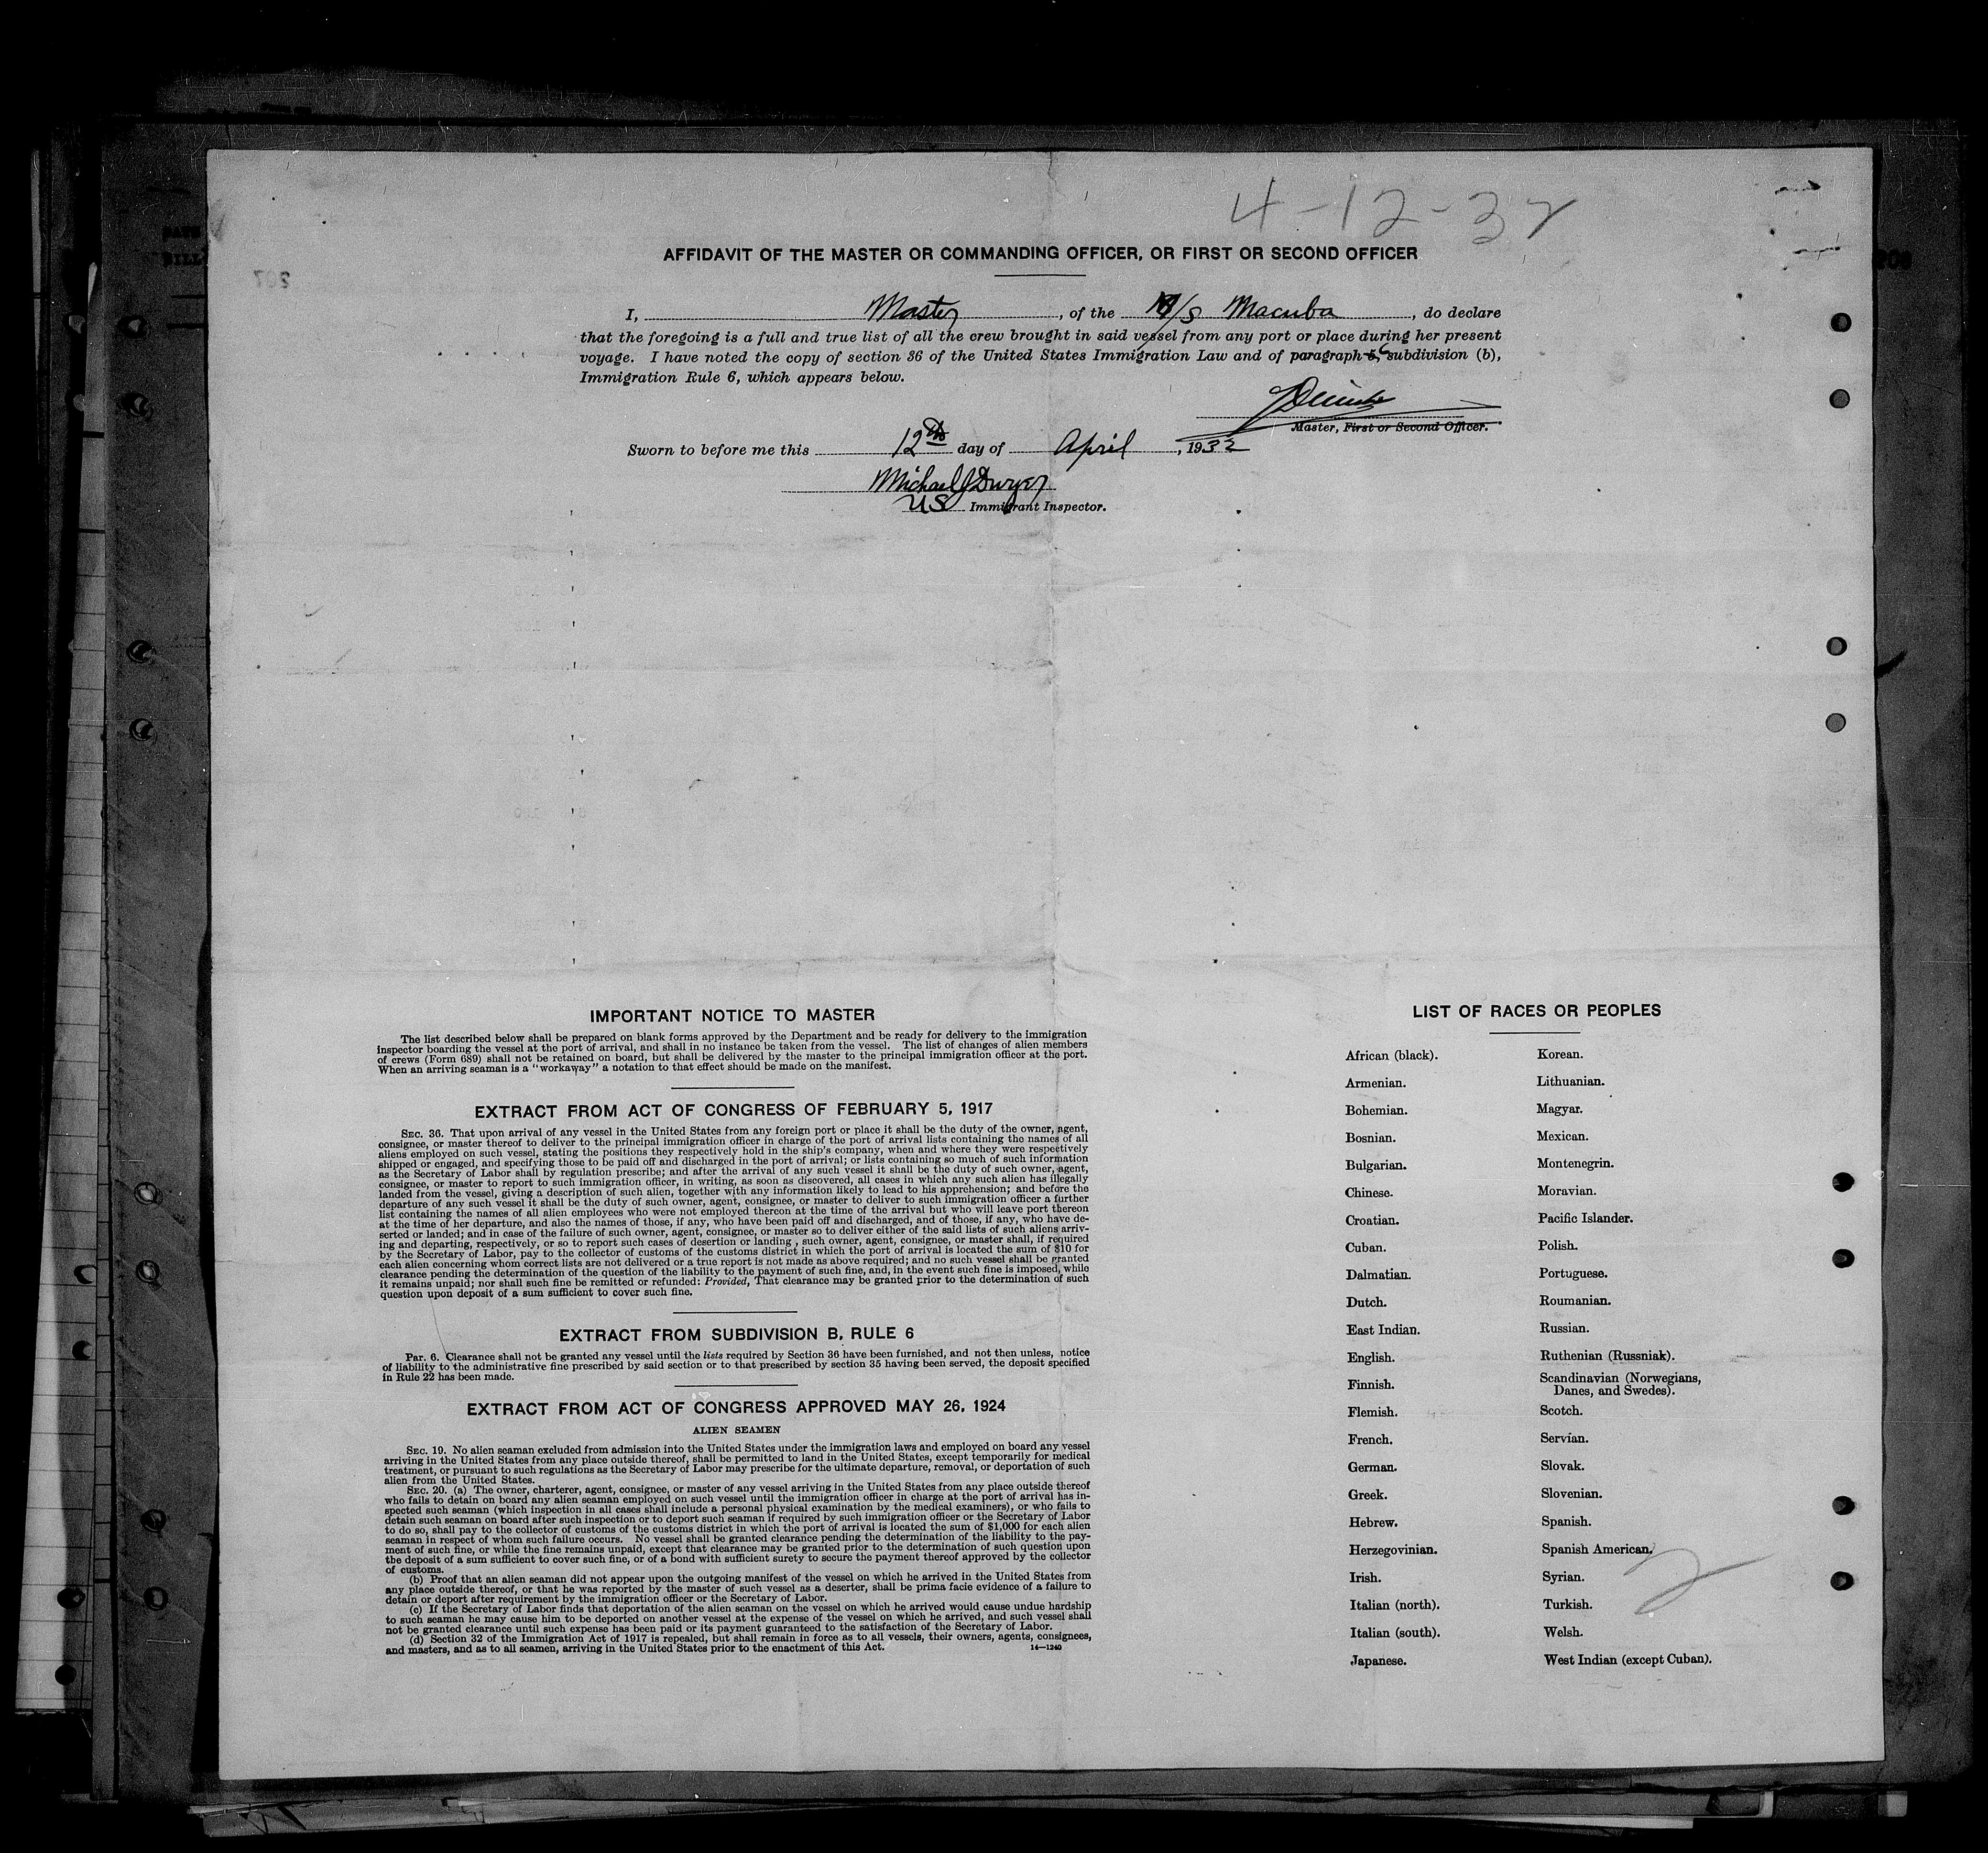 4-12-32
AFFIDAVIT OF THE MASTER OR COMMANDING OFFICER, OR FIRST OR SECOND OFFICER
I, Master, of the M/S Macuba, do declare
that the foregoing is a full and true list of all the crew brought in said vessel from any port or place during her present
voyage. I have noted the copy of section 36 of the United States Immigration Law and of paragraph 6 subdivision (b),
Immigration Rule 6, which appears below.
Master, First or Second Officer.
Sworn to before me this 12th day of April, 1932
Michael J Dwyer
US Immigrant Inspector.
IMPORTANT NOTICE TO MASTER
The list described below shall be prepared on blank forms approved by the Department and be ready for delivery to the immigration
inspector boarding the vessel at the port of arrival, and shall in no instance be taken from the vessel. The list of changes of alien members
of crews (Form 689) shall not be retained on board, but shall be delivered by the master to the principal immigration officer at the port.
When an arriving seaman is a "workaway" a notation to that effect should be made on the manifest.
EXTRACT FROM ACT OF CONGRESS OF FEBRUARY 5, 1917
SEC. 36. That upon arrival of any vessel in the United States from any foreign port or place it shall be the duty of the owner, agent,
consignee, or master thereof to deliver to the principal immigration officer in charge of the port of arrival lists containing the names of all
aliens employed on such vessel, stating the positions they respectively hold in the ship's company, when and where they were respectively
shipped or engaged, and specifying those to be paid off and discharged in the port of arrival; or lists containing so much of such information
as the Secretary of Labor shall by regulation prescribe; and after the arrival of any such vessel it shall be the duty of such owner, agent,
consignee, or master to report to such immigration officer, in writing, as soon as discovered, all cases in which any such alien has illegally
landed from the vessel, giving a description of such alien, together with any information likely to lead to his apprehension; and before the
departure of any such vessel it shall be the duty of such owner, agent, consignee, or master to deliver to such immigration officer a further
list containing the names of all alien employees who were not employed thereon at the time of the arrival but who will leave port thereon
at the time of her departure, and also the names of those, if any, who have been paid off and discharged, and of those, if any, who have de-
serted or landed; and in case of the failure of such owner, agent, consignee, or master so to deliver either of the said lists of such aliens arriv-
ing and departing, respectively, or so to report such cases of desertion or landing, such owner, agent, consignee, or master shall, if required
by the Secretary of Labor, pay to the collector of customs of the customs district in which the port of arrival is located the sum of $10 for
each alien concerning whom correct lists are not delivered or a true report is not made as above required; and no such vessel shall be granted
clearance pending the determination of the question of the liability to the payment of such fine, and, in the event such fine is imposed, while
it remains unpaid; nor shall such fine be remitted or refunded: Provided, That clearance may be granted prior to the determination of such
question upon deposit of a sum sufficient to cover such fine.
EXTRACT FROM SUBDIVISION B, RULE 6
PAR. 6. Clearance shall not be granted any vessel until the lists required by Section 36 have been furnished, and not then unless, notice
of liability to the administrative fine prescribed by said section or to that prescribed by section 35 having been served, the deposit specified
in Rule 22 has been made.
EXTRACT FROM ACT OF CONGRESS APPROVED MAY 26, 1924
ALIEN SEAMEN
SEC. 19. No alien seaman excluded from admission into the United States under the immigration laws and employed on board any vessel
arriving in the United States from any place outside thereof, shall be permitted to land in the United States, except temporarily for medical
treatment, or pursuant to such regulations as the Secretary of Labor may prescribe for the ultimate departure, removal, or deportation of such
alien from the United States.
SEC. 20. (a) The owner, charterer, agent, consignee, or master of any vessel arriving in the United States from any place outside thereof
who fails to detain on board any alien seaman employed on such vessel until the immigration officer in charge at the port of arrival has in-
spected such seaman (which inspection in all cases shall include a personal physical examination by the medical examiners), or who fails to
detain such seaman on board after such inspection or to deport such seaman if required by such immigration officer or the Secretary of Labor
to do so, shall pay to the collector of customs of the customs district in which the port of arrival is located the sum of $1,000 for each alien
seaman in respect of whom such failure occurs. No vessel shall be granted clearance pending the determination of the liability to the pay-
ment of such fine, or while the fine remains unpaid, except that clearance may be granted prior to the determination of such question upon
the deposit of a sum sufficient to cover such fine, or of a bond with sufficient surety to secure the payment thereof approved by the collector
of customs.
(b) Proof that an alien seaman did not appear upon the outgoing manifest of the vessel on which he arrived in the United States from
any place outside thereof, or that he was reported by the master of such vessel as a deserter, shall be prima facie evidence of a failure to
detain or deport after requirement by the immigration officer or the Secretary of Labor.
(c) If the Secretary of Labor finds that deportation of the alien seaman on the vessel on which he arrived would cause undue hardship
to such seaman he may cause him to be deported on another vessel at the expense of the vessel on which he arrived, and such vessel shall
not be granted clearance until such expense has been paid or its payment guaranteed to the satisfaction of the Secretary of Labor.
(d) Section 32 of the Immigration Act of 1917 is repealed, but shall remain in force as to all vessels, their owners, agents, consignees,
and masters, and as to all seamen, arriving in the United States prior to the enactment of this Act. 14—1240
LIST OF RACES OR PEOPLES
African (black).
Armenian.
Bohemian.
Bosnian.
Bulgarian.
Chinese.
Croatian.
Cuban.
Dalmatian.
Dutch.
East Indian.
English.
Finnish.
Flemish.
French.
German.
Greek.
Hebrew.
Herzegovinian.
Irish.
Italian (north).
Italian (south).
Japanese.
Korean.
Lithuanian.
Magyar.
Mexican.
Montenegrin.
Moravian.
Pacific Islander.
Polish.
Portuguese.
Roumanian.
Russian.
Ruthenian (Russniak).
Scandinavian (Norwegians,
Danes, and Swedes).
Scotch.
Servian.
Slovak.
Slovenian.
Spanish.
Spanish American.
Syrian.
Turkish.
Welsh.
West Indian (except Cuban).
2